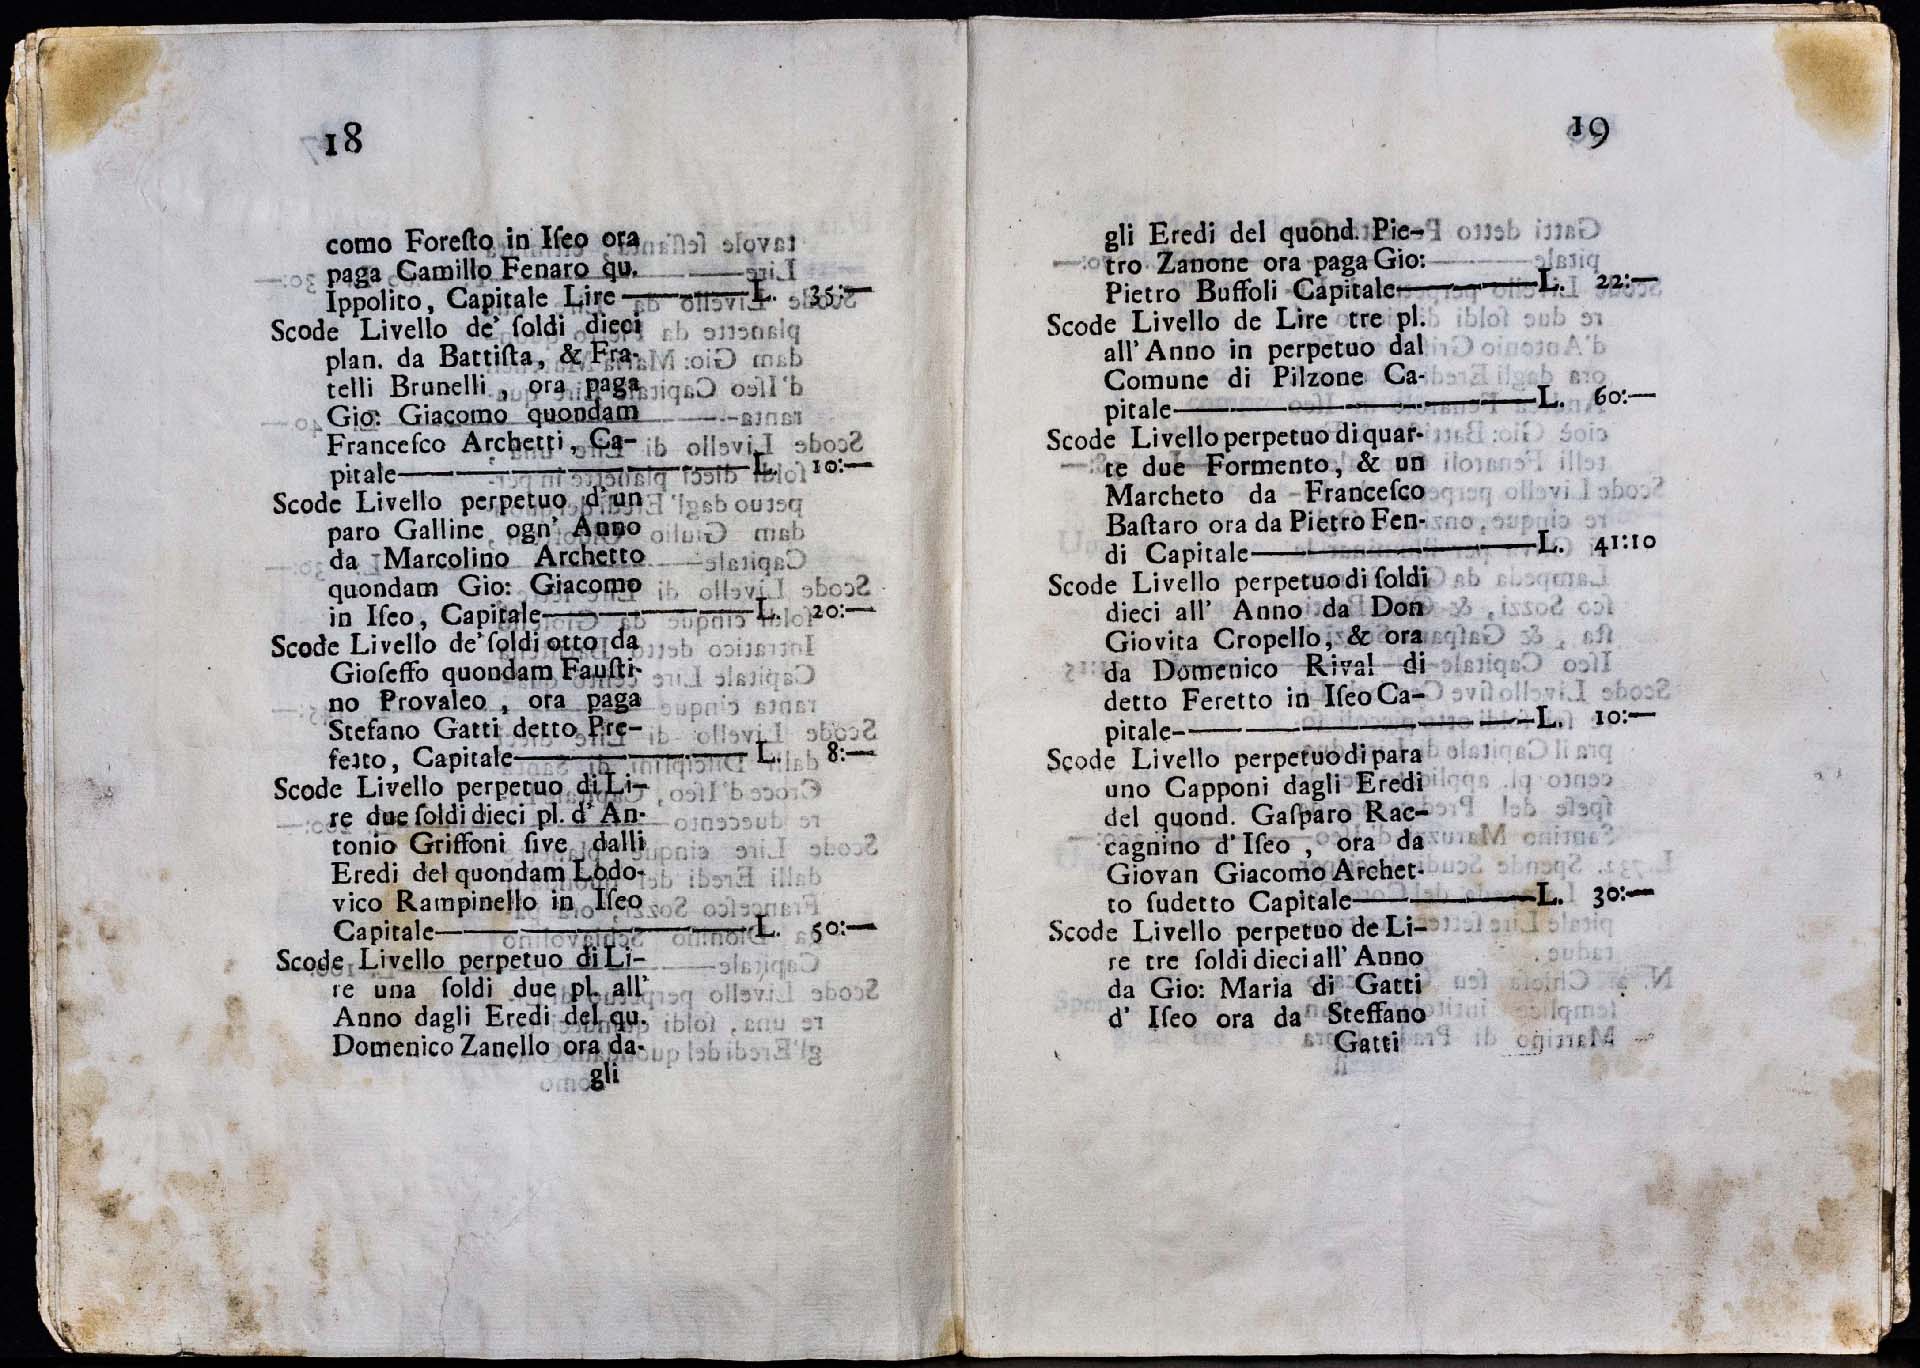 18
como Foreſto in Iſeo ora
paga Camillo Fenaro qu.
Ippolito, Capitale Lire — L. 35:—
Scode Livello de' ſoldi dieci
plan. da Battiſta, & Fra-
telli Brunelli, ora paga
Gio: Giacomo quondam
Franceſco Archetti, Ca-
pitale — L. 10:—
Scode Livello perpetuo d' un
paro Galline ogn' Anno
da Marcolino Archetto
quondam Gio: Giacomo
in Iſeo, Capitale — L. 20:—
Scode Livello de' ſoldi otto da
Gioſeffo quondam Fauſti-
no Provaleo, ora paga
Stefano Gatti detto Pre-
fetto, Capitale — L. 8:—
Scode Livello perpetuo di Li-
re due ſoldi dieci pl. d' An-
tonio Griffoni ſive dalli
Eredi del quondam Lodo-
vico Rampinello in Iſeo
Capitale — L. 50:—
Scode Livello perpetuo di Li-
re una ſoldi due pl. all'
Anno dagli Eredi del qu.
Domenico Zanello ora da-
gli
19
gli Eredi del quond. Pie-
tro Zanone ora paga Gio:
Pietro Buffoli Capitale — L. 22:—
Scode Livello de Lire tre pl.
all' Anno in perpetuo dal
Comune di Pilzone Ca-
pitale — L. 60:—
Scode Livello perpetuo di quar-
te due Formento, & un
Marcheto da Franceſco
Baſtaro ora da Pietro Fen-
di Capitale — L. 41:10
Scode Livello perpetuo di ſoldi
dieci all' Anno da Don
Giovita Cropello, & ora
da Domenico Rival di
detto Feretto in Iſeo Ca-
pitale — L. 10:—
Scode Livello perpetuo di para
uno Capponi dagli Eredi
del quond. Gaſparo Rac-
cagnino d' Iſeo, ora da
Giovan Giacomo Archet-
to ſudetto Capitale — L. 30:—
Scode Livello perpetuo de Li-
re tre ſoldi dieci all' Anno
da Gio: Maria di Gatti
d' Iſeo ora da Steffano
Gatti